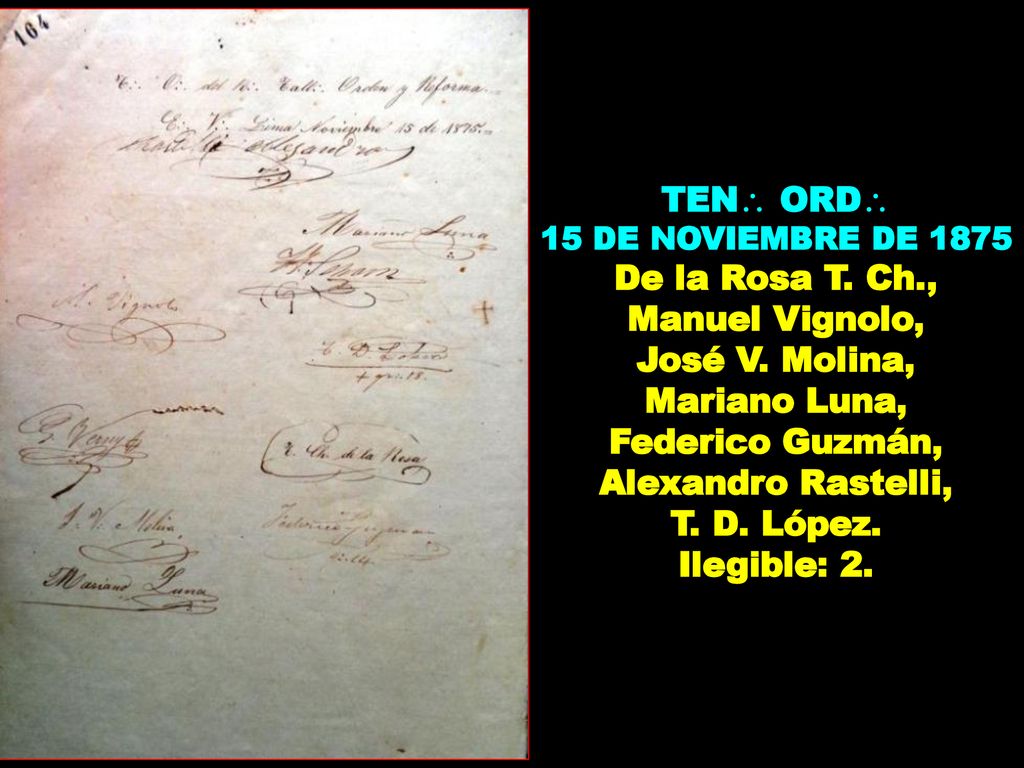 164
T∴ O∴ del R∴ Tall∴ Orden y Reforma
E∴ V∴ Lima Noviembre 15 de 1875.
Rastelli Alejandro
Mariano Luna
M. Vignolo
T. Ch. de la Rosa
J. V. Molina
Federico Guzman
Mariano Luna
TEN∴ ORD∴
15 DE NOVIEMBRE DE 1875
De la Rosa T. Ch.,
Manuel Vignolo,
José V. Molina,
Mariano Luna,
Federico Guzmán,
Alexandro Rastelli,
T. D. López.
Ilegible: 2.